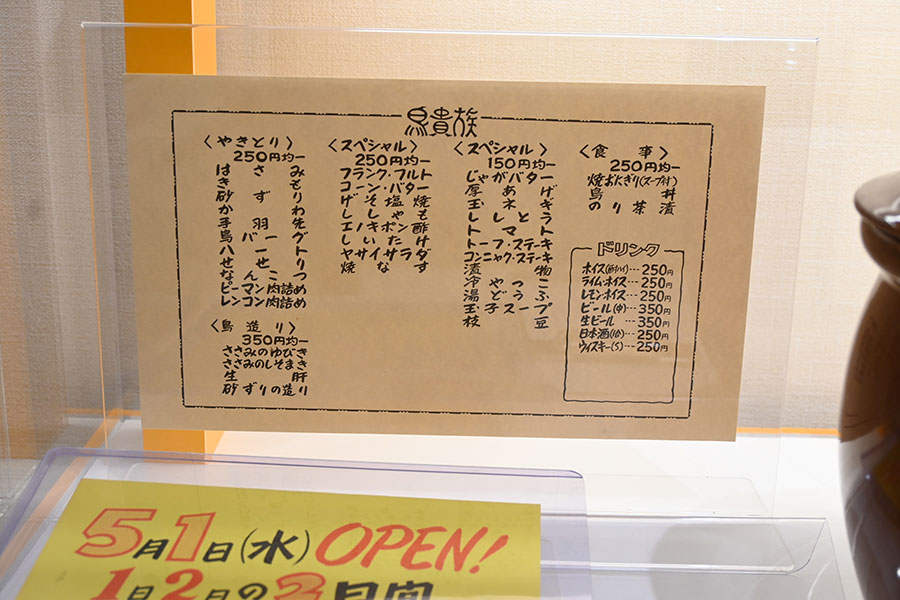 鳥貴族
〈やきとり〉
250円均一
はさみ
きも
砂ずり
かわ
手羽先
鳥バーグ
ハート
せせり
なんこつ
ピーマン肉詰め
レンコン肉詰め
〈鳥造り〉
350円均一
ささみのゆびき
ささみのしそまき
生肝
砂ずりの造り
〈スペシャル〉
250円均一
フランク・フルト
コーン・バター
げそ塩焼
ししゃも
エノキポン酢
しいたけ
ヤサイサラダ
焼なす
〈スペシャル〉
150円均一
じゃがバター
厚あげ
玉ネギ
ししとう
トマト
トーフ・ステーキ
コンニャク・ステーキ
漬物
冷やっこ
湯どうふ
玉子スープ
枝豆
〈食事〉
250円均一
焼おにぎり(スープ付)
鳥丼
のり茶漬
ドリンク
ホイス(酎ハイ)…250円
ライム・ホイス…250円
レモン・ホイス…250円
ビール(中)…350円
生ビール…350円
日本酒(1合)…250円
ウイスキー(S)…250円
5月1日(水)OPEN!
1日2日の2日間